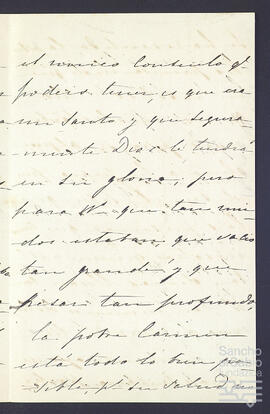 el unico consuelo q.
podeis tener, es que era
un Santo y que segura-
mente Dios le tendrá
en su gloria; pero
para V. que tan uni-
dos estaban, que vacio
tan grande! y que
pesar tan profundo
la pobre Cármen
está todo lo bien po-
sible, p.ª su salud, en
Sancho